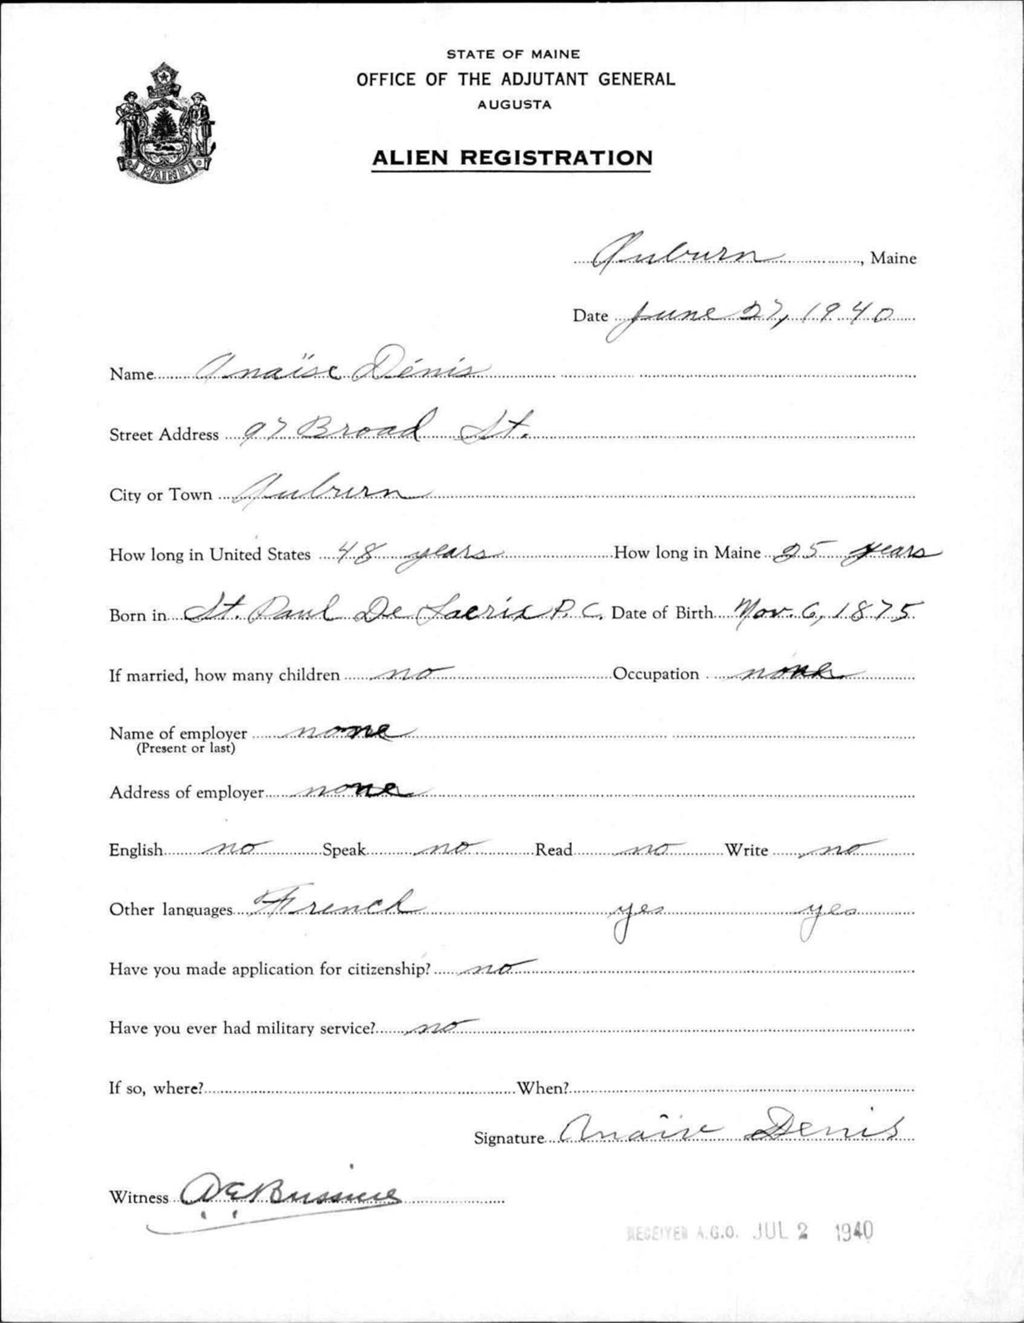 STATE OF MAINE
OFFICE OF THE ADJUTANT GENERAL
AUGUSTA
ALIEN REGISTRATION
MAINE
Auburn, Maine
Date June 27, 1940
Name Anaïse Dénis
Street Address 97 Broad St.
City or Town Auburn
How long in United States 48 years How long in Maine 25 years
Born in St. Paul De Lacrix P.C. Date of Birth Nov. 6, 1875
If married, how many children no Occupation none
Name of employer none
(Present or last)
Address of employer none
English no Speak no Read no Write no
Other languages French yes yes
Have you made application for citizenship? no
Have you ever had military service? no
If so, where? When?
Signature Anaïse Denis
Witness
RECEIVED A.G.O. JUL 2 1940